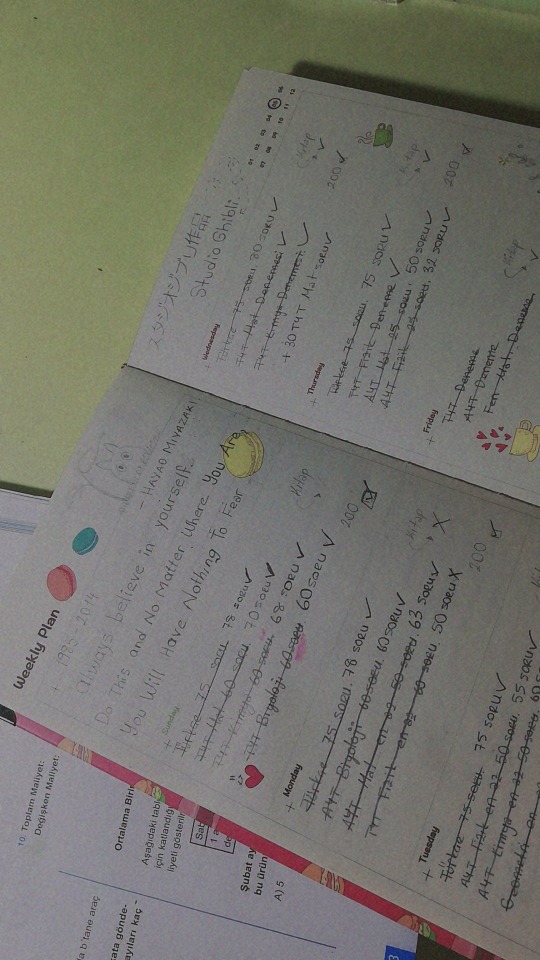 Weekly Plan
1985-2014
Always believe in yourself.
Do This and No Matter Where You Are,
You Will Have Nothing To Fear
- HAYAO MIYAZAKI
+ Sunday
Türkçe 75 soru 78 SORU ✓
TYT Mat 60 soru 70 SORU ✓
TYT Kimya 60 soru 68 SORU ✓
TYT Biyoloji 60 soru 60 SORU ✓
Kitap
200
+ Monday
Türkçe 75 soru. 78 SORU ✓
AYT Biyoloji 60 soru. 60 SORU ✓
AYT Mat en az 50 soru. 63 SORU ✓
Fizik en az 60 soru. 50 SORU X
Kitap
X
200
+ Tuesday
Türkçe 75 soru. 75 SORU ✓
AYT Fizik en az 50 soru. 55 SORU ✓
AYT Kimya en az 50 soru
Geometri en az
スタジオジブリ作品
Studio Ghibli
01 02 03 04 05 06
07 08 09 10 11 12
Wednesday
Türkçe 75 soru. 80 SORU ✓
TYT Mat Denemesi ✓
TYT Kimya Denemesi ✓
+ 30 TYT Mat SORU ✓
Kitap
✓
200 ✓
+ Thursday
Türkçe 75 soru. 75 SORU ✓
TYT Fizik Deneme ✓
AYT Mat 25 soru. 50 SORU ✓
AYT Fizik 25 soru. 32 SORU ✓
Kitap
✓
200 ✓
+ Friday
TYT Deneme
AYT Deneme
Fen Mat Deneme
Kitap
✓
10. Toplam Maliyet:
Değişken Maliyet:
Ortalama Biri
Aşağıdaki tabl
için katlandığ
liyeti gösterilm
Şubat ay
bu ürün
A) 5
b'tane araç
kata gönde-
ayıları kaç -